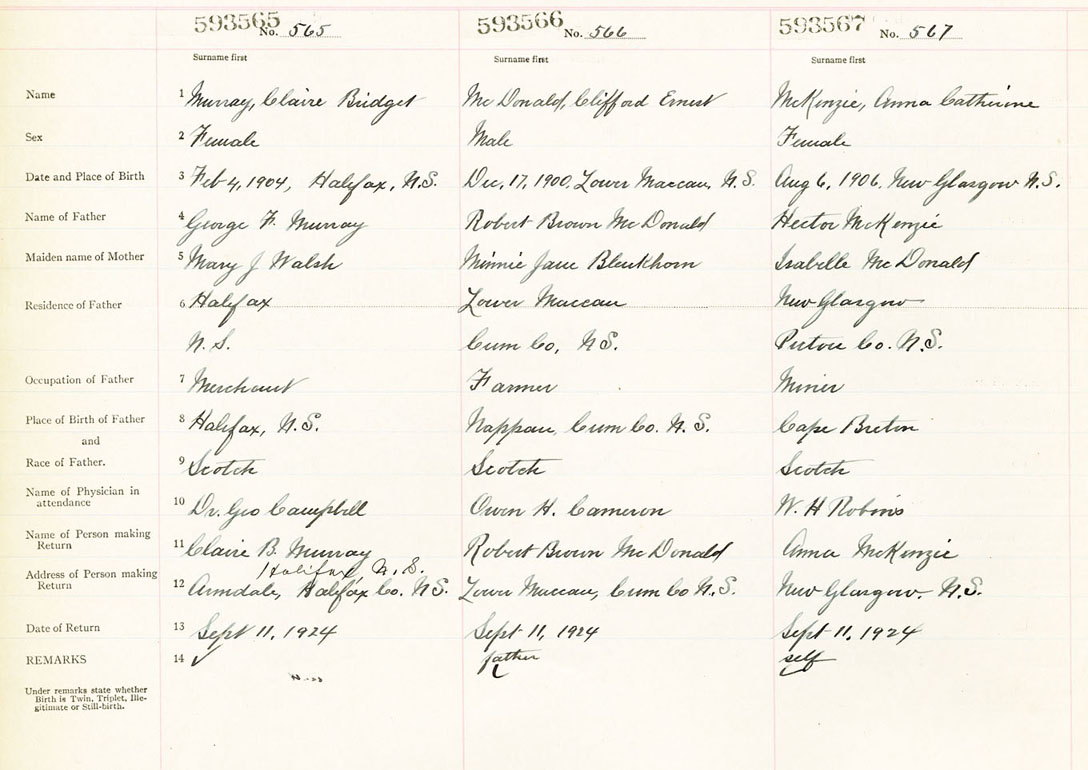 593565 No. 565 593566 No. 566 593567 No. 567
Surname first Surname first Surname first
Name 1 Murray, Claire Bridget Mc Donald, Clifford Ernest McKenzie, Anna Catherine
Sex 2 Female Male Female
Date and Place of Birth 3 Feb 4, 1904, Halifax, N.S. Dec. 17, 1900. Lower Maccan, N.S. Aug 6, 1906. New Glasgow N.S.
Name of Father 4 George F. Murray Robert Brown McDonald Hector McKenzie
Maiden name of Mother 5 Mary J Walsh Minnie Jane Blenkhorn Isabelle McDonald
Residence of Father 6 Halifax Lower Maccan New Glasgow
N.S. Cum Co, N.S. Pictou Co. N.S.
Occupation of Father 7 Merchant Farmer Miner
Place of Birth of Father 8 Halifax, N.S. Nappan, Cum Co. N.S. Cape Breton
and
Race of Father. 9 Scotch Scotch Scotch
Name of Physician in attendance 10 Dr. Geo Campbell Owen H. Cameron W. H Robins
Name of Person making Return 11 Claire B. Murray Robert Brown McDonald Anna McKenzie
Halifax, N.S.
Address of Person making Return 12 Armdale, Halifax Co. N.S. Lower Maccan, Cum Co N.S. New Glasgow - N.S.
Date of Return 13 Sept 11, 1924 Sept 11, 1924 Sept 11, 1924
REMARKS 14 ✓ father self
Under remarks state whether
Birth is Twin, Triplet, Ille-
gitimate or Still-birth.